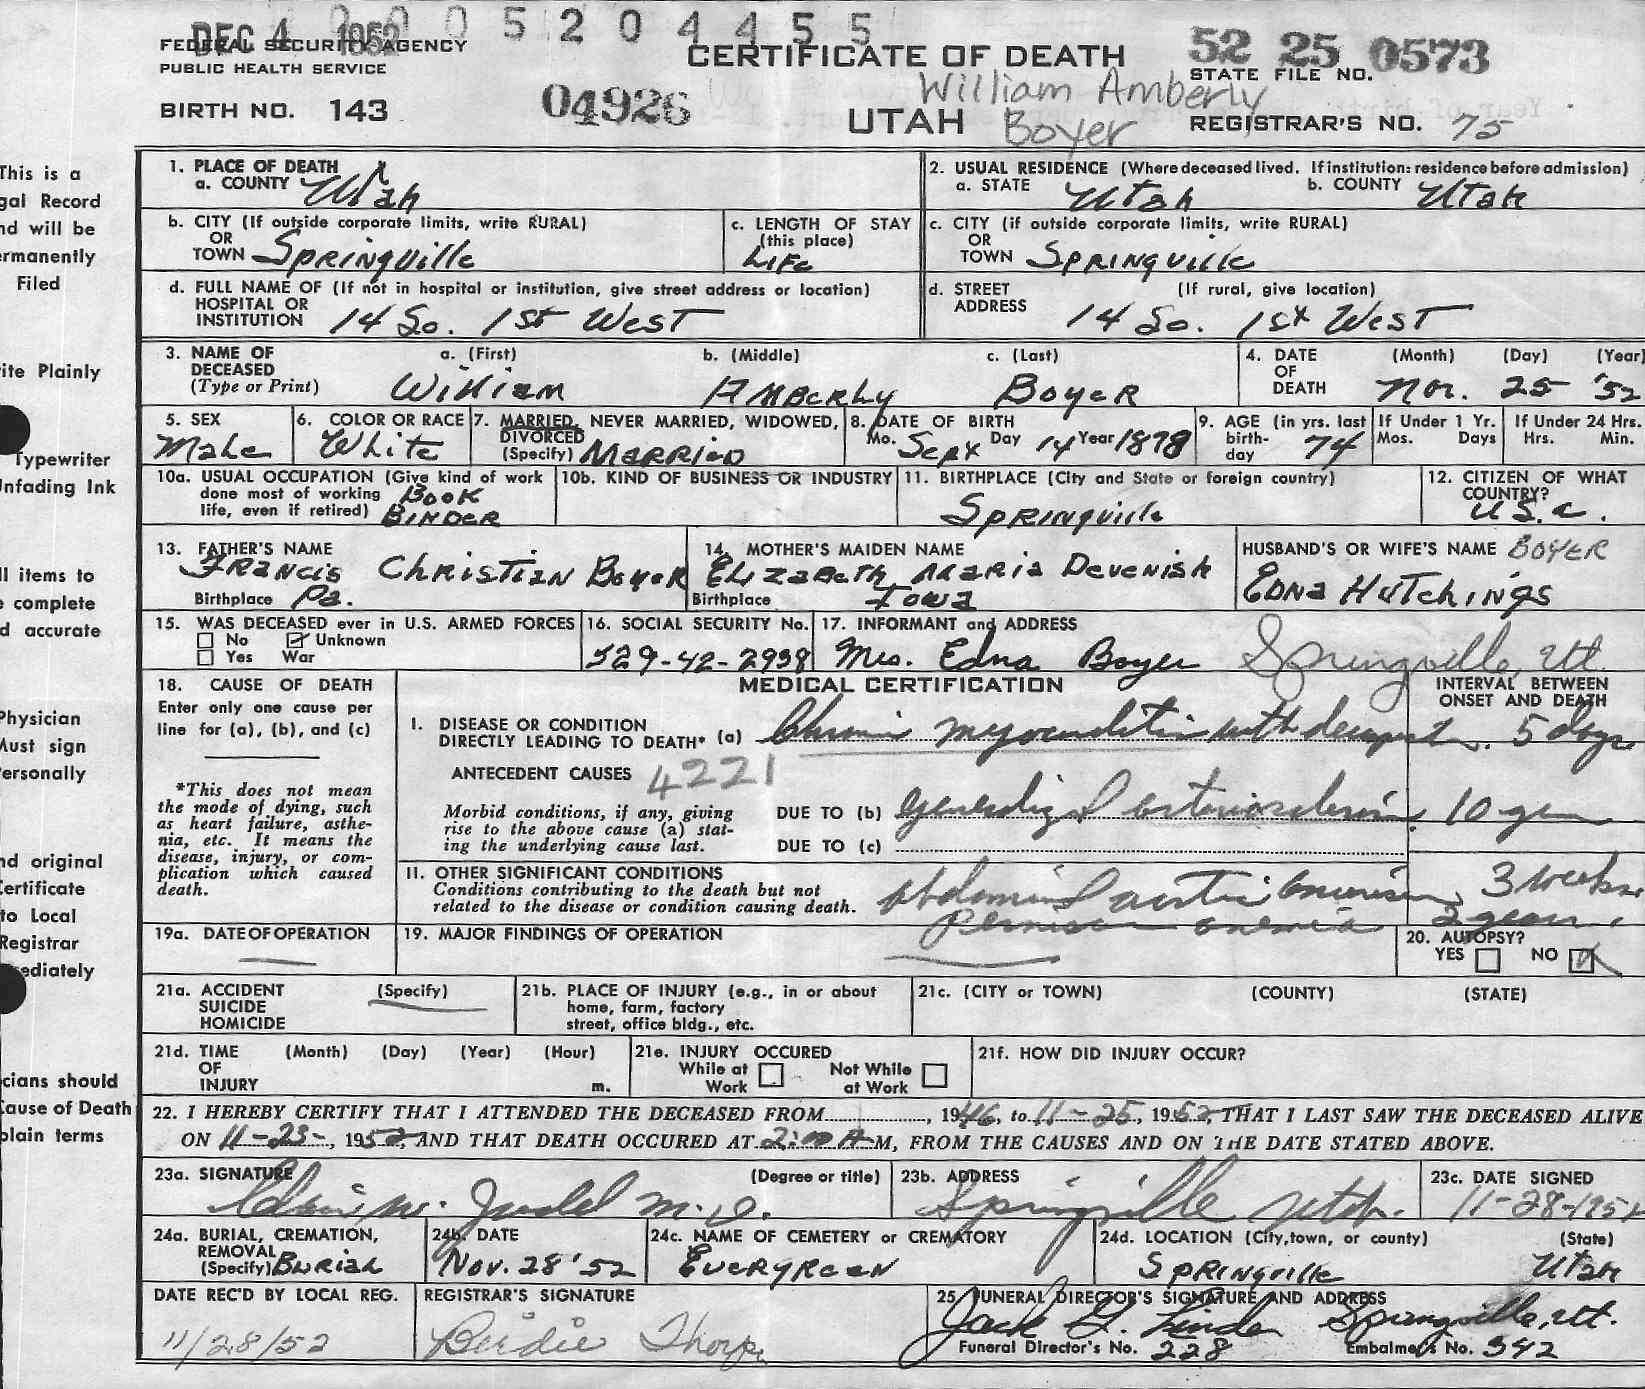 0 0 0 5 2 0 4 4 5 5
DEC 4 1952
FEDERAL SECURITY AGENCY
PUBLIC HEALTH SERVICE
BIRTH NO. 143
04926
CERTIFICATE OF DEATH
William Amberly
UTAH Boyer
52 25 0573
STATE FILE NO.
REGISTRAR'S NO. 75
This is a
gal Record
nd will be
ermanently
Filed
ite Plainly
Typewriter
Unfading Ink
ll items to
e complete
d accurate
Physician
Must sign
ersonally
nd original
Certificate
to Local
Registrar
mediately
cians should
Cause of Death
plain terms
1. PLACE OF DEATH
a. COUNTY Utah
2. USUAL RESIDENCE (Where deceased lived. If institution: residence before admission)
a. STATE Utah b. COUNTY Utah
b. CITY (If outside corporate limits, write RURAL)
OR
TOWN Springville
c. LENGTH OF STAY
(this place)
Life
c. CITY (if outside corporate limits, write RURAL)
OR
TOWN Springville
d. FULL NAME OF (If not in hospital or institution, give street address or location)
HOSPITAL OR
INSTITUTION 14 So. 1st West
d. STREET (If rural, give location)
ADDRESS 14 So. 1st West
3. NAME OF a. (First) b. (Middle) c. (Last)
DECEASED
(Type or Print) William Amberly Boyer
4. DATE (Month) (Day) (Year)
OF
DEATH Nov. 25 '52
5. SEX
Male
6. COLOR OR RACE
White
7. MARRIED, NEVER MARRIED, WIDOWED,
DIVORCED
(Specify) Married
8. DATE OF BIRTH
Mo. Sept Day 14 Year 1878
9. AGE (in yrs. last
birth-
day 74
If Under 1 Yr.
Mos. Days
If Under 24 Hrs.
Hrs. Min.
10a. USUAL OCCUPATION (Give kind of work
done most of working Book
life, even if retired) Binder
10b. KIND OF BUSINESS OR INDUSTRY
11. BIRTHPLACE (City and State or foreign country)
Springville
12. CITIZEN OF WHAT
COUNTRY?
U.S.A.
13. FATHER'S NAME
Francis Christian Boyer
Birthplace Pa.
14. MOTHER'S MAIDEN NAME
Elizabeth Maria Devenish
Birthplace Iowa
HUSBAND'S OR WIFE'S NAME BOYER
Edna Hutchings
15. WAS DECEASED ever in U.S. ARMED FORCES
No Unknown
Yes War
16. SOCIAL SECURITY No.
529-42-2938
17. INFORMANT and ADDRESS
Mrs. Edna Boyer Springville, Ut.
18. CAUSE OF DEATH
Enter only one cause per
line for (a), (b), and (c)
*This does not mean
the mode of dying, such
as heart failure, asthe-
nia, etc. It means the
disease, injury, or com-
plication which caused
death.
MEDICAL CERTIFICATION
INTERVAL BETWEEN
ONSET AND DEATH
I. DISEASE OR CONDITION
DIRECTLY LEADING TO DEATH* (a) Chronic myocarditis with 5 days
ANTECEDENT CAUSES 4221
Morbid conditions, if any, giving
rise to the above cause (a) stat-
ing the underlying cause last.
DUE TO (b) generalized arteriosclerosis 10 years
DUE TO (c)
II. OTHER SIGNIFICANT CONDITIONS
Conditions contributing to the death but not
related to the disease or condition causing death.
Abdominal aortic aneurism 3 weeks
Pernicious anemia 2 years
19a. DATE OF OPERATION
19. MAJOR FINDINGS OF OPERATION
20. AUTOPSY?
YES NO
21a. ACCIDENT (Specify)
SUICIDE
HOMICIDE
21b. PLACE OF INJURY (e.g., in or about
home, farm, factory
street, office bldg., etc.
21c. (CITY or TOWN) (COUNTY) (STATE)
21d. TIME (Month) (Day) (Year) (Hour)
OF
INJURY m.
21e. INJURY OCCURED
While at Not While
Work at Work
21f. HOW DID INJURY OCCUR?
22. I HEREBY CERTIFY THAT I ATTENDED THE DECEASED FROM, 1946, to 11-25, 1952, THAT I LAST SAW THE DECEASED ALIVE
ON 11-23-, 1952, AND THAT DEATH OCCURED AT 2:00 A M, FROM THE CAUSES AND ON THE DATE STATED ABOVE.
23a. SIGNATURE (Degree or title)
W. Judd M.D.
23b. ADDRESS
Springville Utah.
23c. DATE SIGNED
11-28-195
24a. BURIAL, CREMATION,
REMOVAL
(Specify) Burial
24b. DATE
Nov. 28 '52
24c. NAME OF CEMETERY or CREMATORY
Evergreen
24d. LOCATION (City, town, or county) (State)
Springville Utah
DATE REC'D BY LOCAL REG.
11/28/52
REGISTRAR'S SIGNATURE
Berdie Thorpe
25. FUNERAL DIRECTOR'S SIGNATURE AND ADDRESS
Jack Springville, Ut.
Funeral Director's No. 228 Embalmer's No. 342